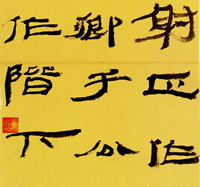 射正作
卿于公
作階下